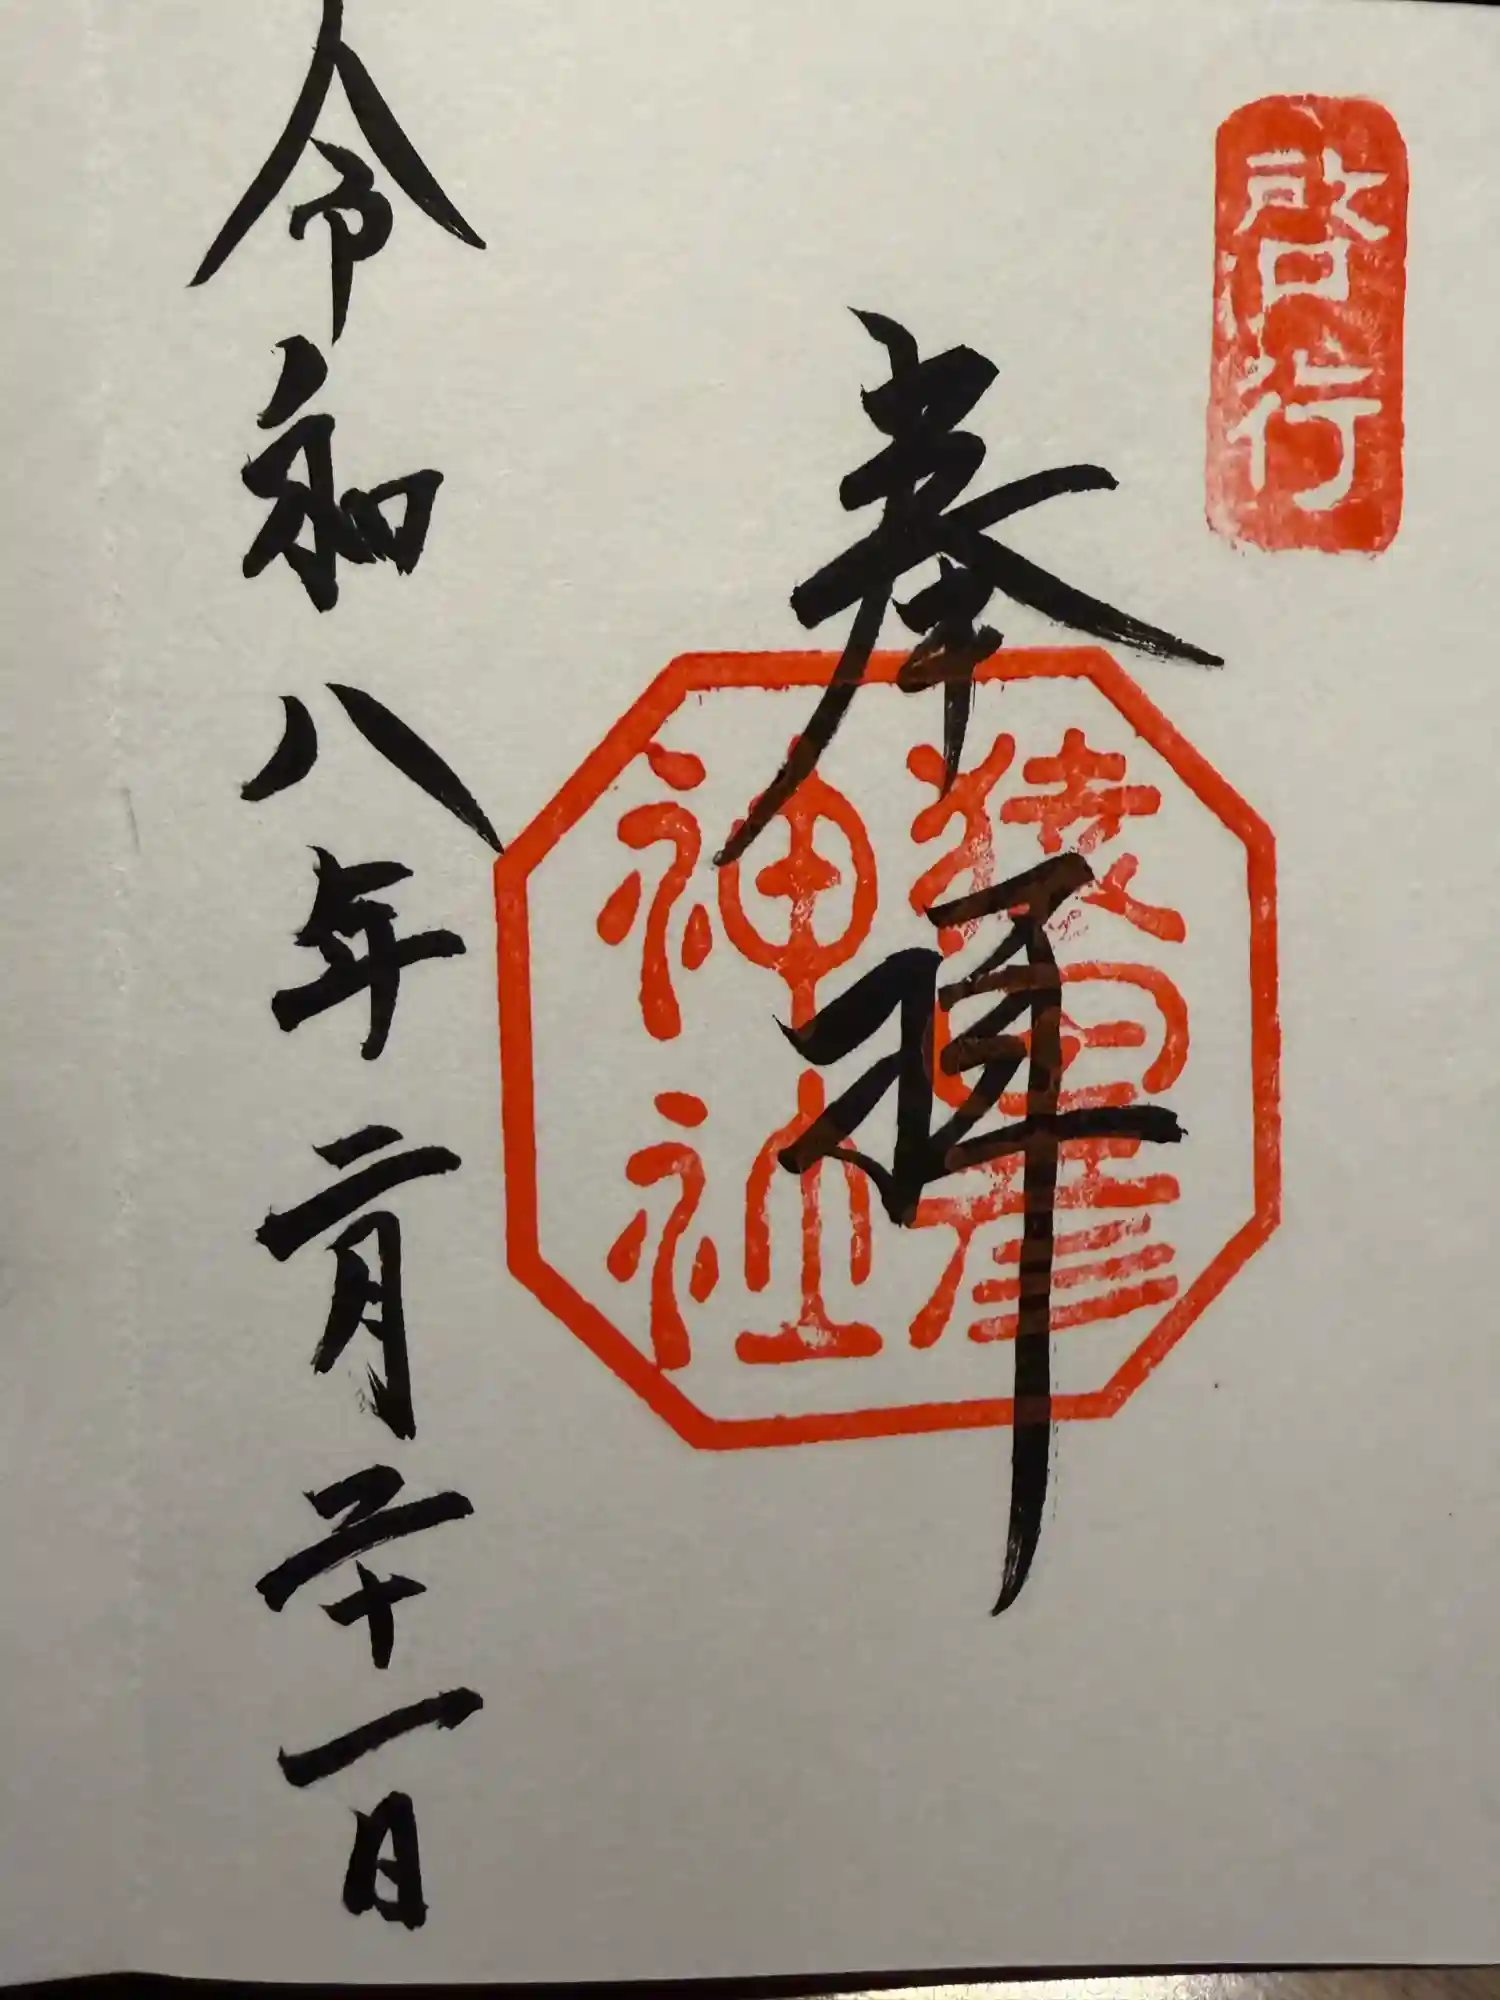 啓行
奉拝
猿田彦
神社
令和八年二月二十一日